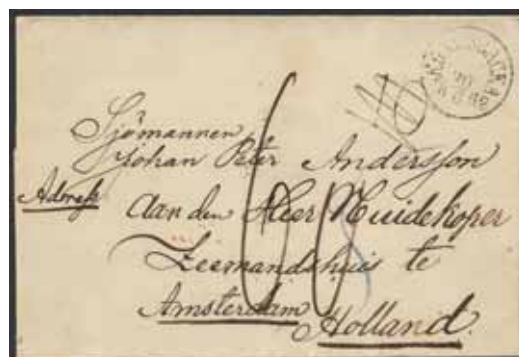 Sjömannen
Johan Peter Andersson
Adress
Aan den Heer Muidekoper
Zeemandshuis te
Amsterdam
Holland.
60